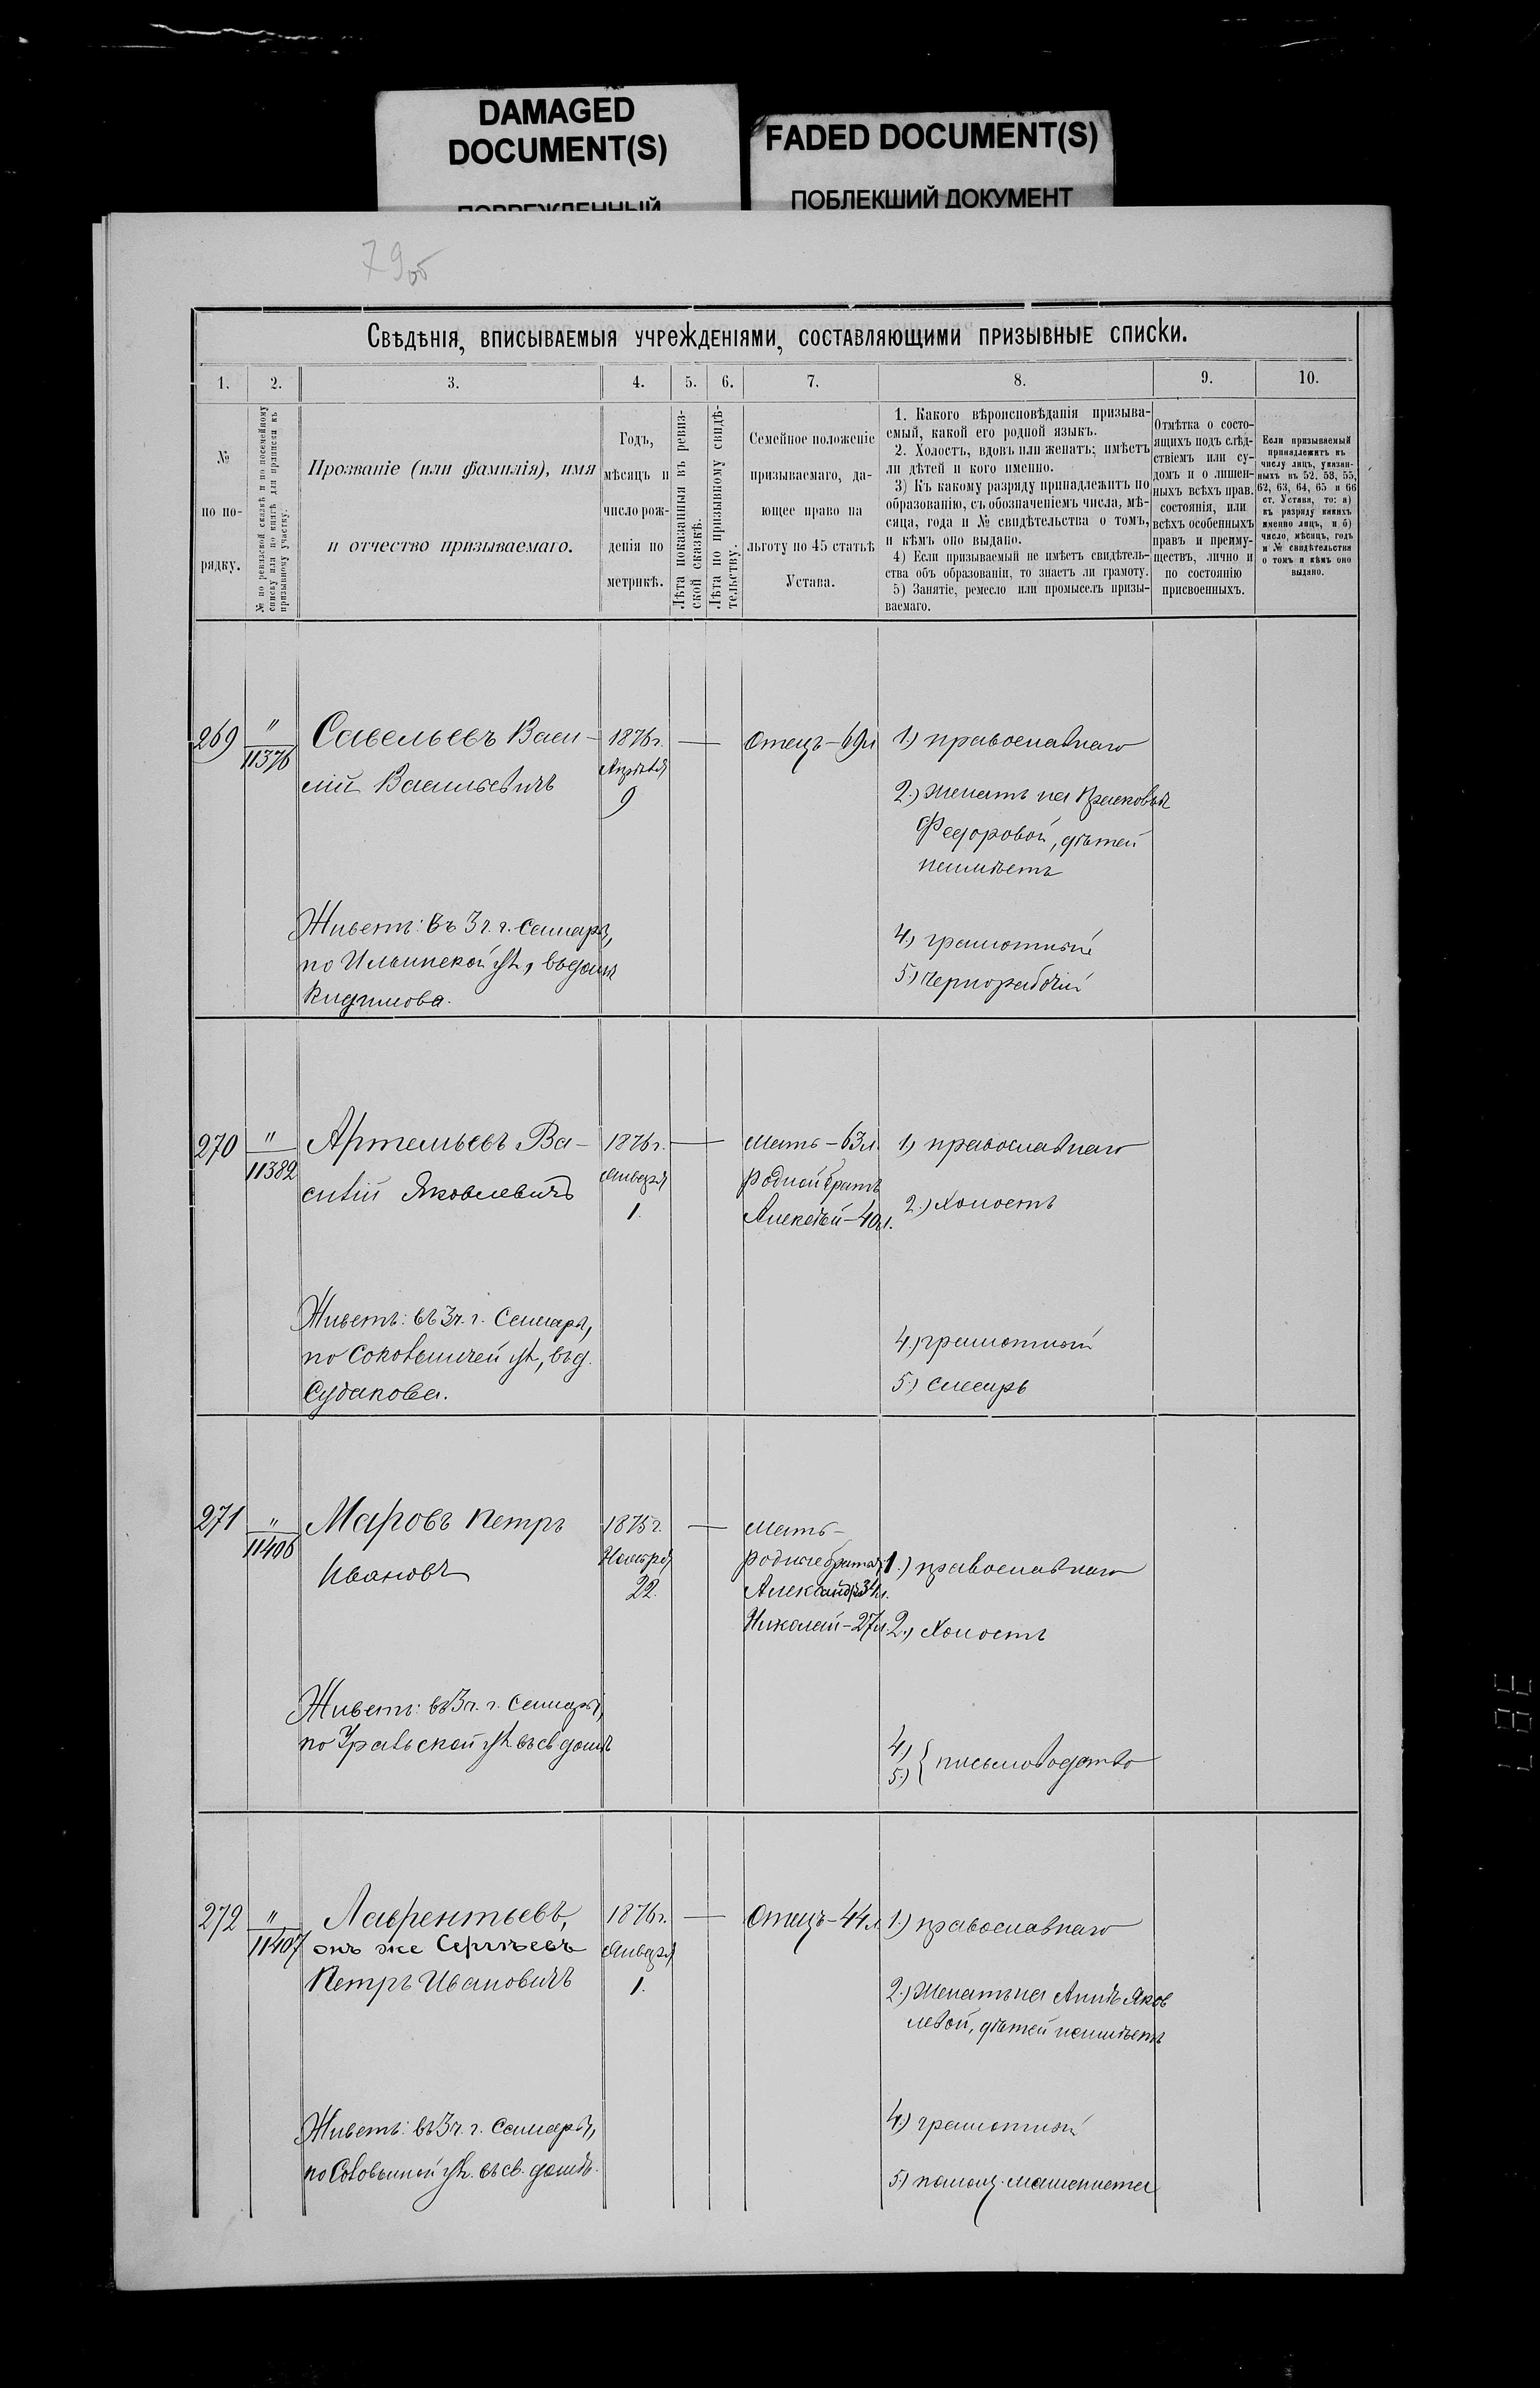 DAMAGED
DOCUMENT(S)
ПОВРЕЖДЕННЫЙ
FADED DOCUMENT(S)
ПОБЛЕКШИЙ ДОКУМЕНТ
79об
Свѣдѣнія, вписываемыя учрежденіями, составляющими призывные списки.
1. 2. 3. 4. 5. 6. 7. 8. 9. 10.
№
по по-
рядку.
№ по ревизской сказкѣ и по посемейному
списку или по книгѣ для приписки къ
призывному участку.
Прозваніе (или фамилія), имя
и отчество призываемаго.
Годъ,
мѣсяцъ и
число рож-
денія по
метрикѣ.
Лѣта показанныя въ ревиз-
ской сказкѣ.
Лѣта по призывному свидѣ-
тельству.
Семейное положеніе
призываемаго, да-
ющее право на
льготу по 45 статьѣ
Устава.
1. Какого вѣроисповѣданія призыва-
емый, какой его родной языкъ.
2. Холостъ, вдовъ или женатъ; имѣетъ
ли дѣтей и кого именно.
3) Къ какому разряду принадлежитъ по
образованію, съ обозначеніемъ числа, мѣ-
сяца, года и № свидѣтельства о томъ,
и кѣмъ оно выдано.
4) Если призываемый не имѣетъ свидѣтель-
ства объ образованіи, то знаетъ ли грамоту.
5) Занятіе, ремесло или промыселъ призы-
ваемаго.
Отмѣтка о состо-
ящихъ подъ слѣд-
ствіемъ или су-
домъ и о лишен-
ныхъ всѣхъ прав.
состоянія, или
всѣхъ особенныхъ
правъ и преиму-
ществъ, лично и
по состоянію
присвоенныхъ.
Если призываемый
принадлежитъ къ
числу лицъ, указан-
ныхъ въ 52, 53, 55,
62, 63, 64, 65 и 66
ст. Устава, то: а)
къ разряду какихъ
именно лицъ, и б)
число, мѣсяцъ, годъ
и № свидѣтельства
о томъ и кѣмъ оно
выдано.
269
"
11376
Савельевъ Васи-
лій Васильевичъ
Живетъ: въ 3 ч. г. Самары,
по Ильинской ул, въ домѣ
Кидимова.
1876 г.
Апрѣля
9
—
Отецъ - 69 л
1.) православнаго
2.) Женатъ на Прасковьѣ
Федоровой, дѣтей
неимѣетъ
4.) грамотный
5.) Чернорабочій
270
"
11382
Артемьевъ Ва-
силій Яковлевичъ
Живетъ: въ 3 ч. г. Самары,
по Соловьиной ул, въ д.
Судакова.
1876 г.
Января
1.
—
Мать - 63 л.
родной братъ
Алексѣй - 40 л.
1.) православнаго
2.) Холостъ
4.) грамотный
5.) Слесарь
271
"
11406
Маровъ Петръ
Ивановъ
Живетъ: въ 3 ч. г. Самары,
по Уральской ул. въ св домѣ
1875 г.
Ноября
22.
—
Мать -
родные братья
Александръ 34 л.
Николай - 27 л
1.) православнаго
2.) Холостъ
4.)
5.) { письмоводство
272
"
11407
Лаврентьевъ,
онъ же Сергѣевъ
Петръ Ивановичъ
Живетъ: въ 3 ч. г. Самары,
по Соловьиной ул. въ св. домѣ.
1876 г.
Января
1.
—
Отецъ - 44 л
1.) православнаго
2.) Женатъ на Аннѣ Яков
левой, дѣтей неимѣетъ
4.) грамотный
5.) помощ. машиниста
387